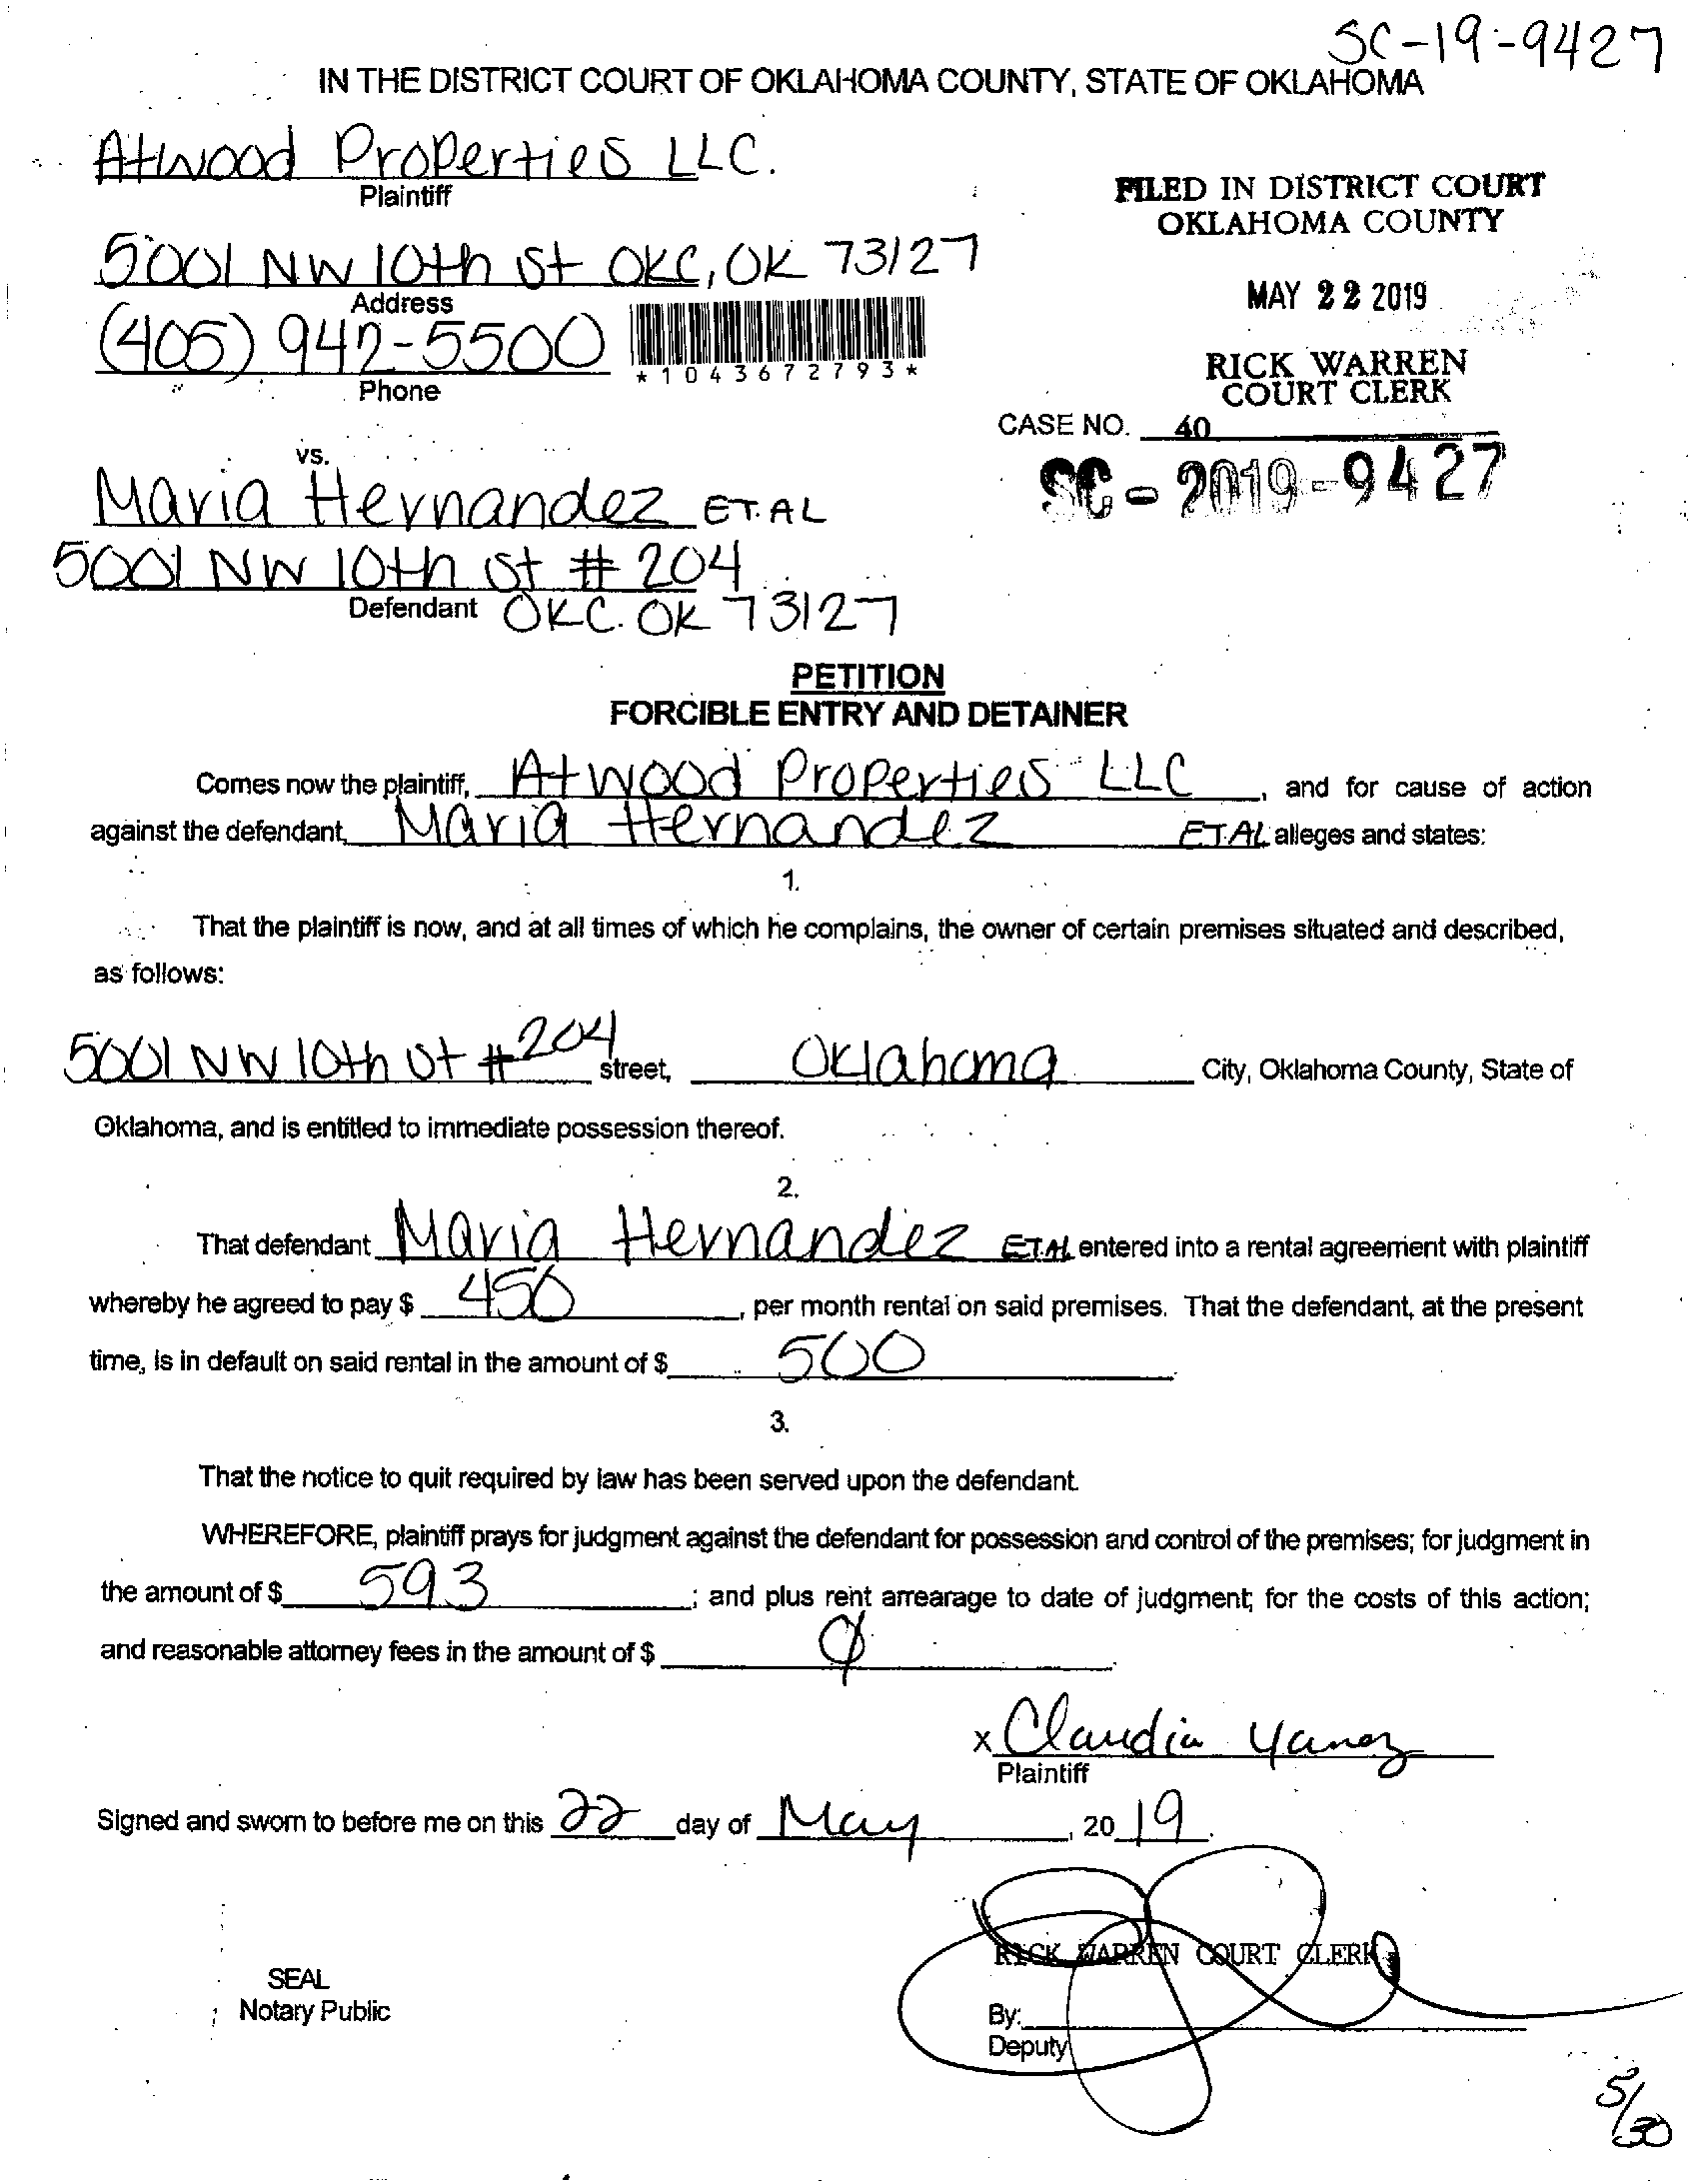 SC-19-9427
IN THE DISTRICT COURT OF OKLAHOMA COUNTY, STATE OF OKLAHOMA
Atwood Properties LLC.
Plaintiff
FILED IN DISTRICT COURT
OKLAHOMA COUNTY
5001 NW 10th St OKC, OK 73127
Address
MAY 22 2019
(405) 942-5500
*1043672793*
Phone
RICK WARREN
COURT CLERK
CASE NO. 40
SC-2019-9427
vs.
Maria Hernandez ET.AL
5001 NW 10th St # 204
Defendant OKC. OK 73127
PETITION
FORCIBLE ENTRY AND DETAINER
Comes now the plaintiff, Atwood Properties LLC, and for cause of action
against the defendant, Maria Hernandez ET.AL alleges and states:
1.
That the plaintiff is now, and at all times of which he complains, the owner of certain premises situated and described,
as follows:
5001 NW 10th St #204 street, Oklahoma City, Oklahoma County, State of
Oklahoma, and is entitled to immediate possession thereof.
2.
That defendant Maria Hernandez ET.AL entered into a rental agreement with plaintiff
whereby he agreed to pay $ 450, per month rental on said premises. That the defendant, at the present
time, is in default on said rental in the amount of $ 500.
3.
That the notice to quit required by law has been served upon the defendant.
WHEREFORE, plaintiff prays for judgment against the defendant for possession and control of the premises; for judgment in
the amount of $ 593; and plus rent arrearage to date of judgment; for the costs of this action;
and reasonable attorney fees in the amount of $ 0.
x Claudia Yanez
Plaintiff
Signed and sworn to before me on this 22 day of May, 2019.
RICK WARREN COURT CLERK
SEAL
Notary Public
By:
Deputy
5/30